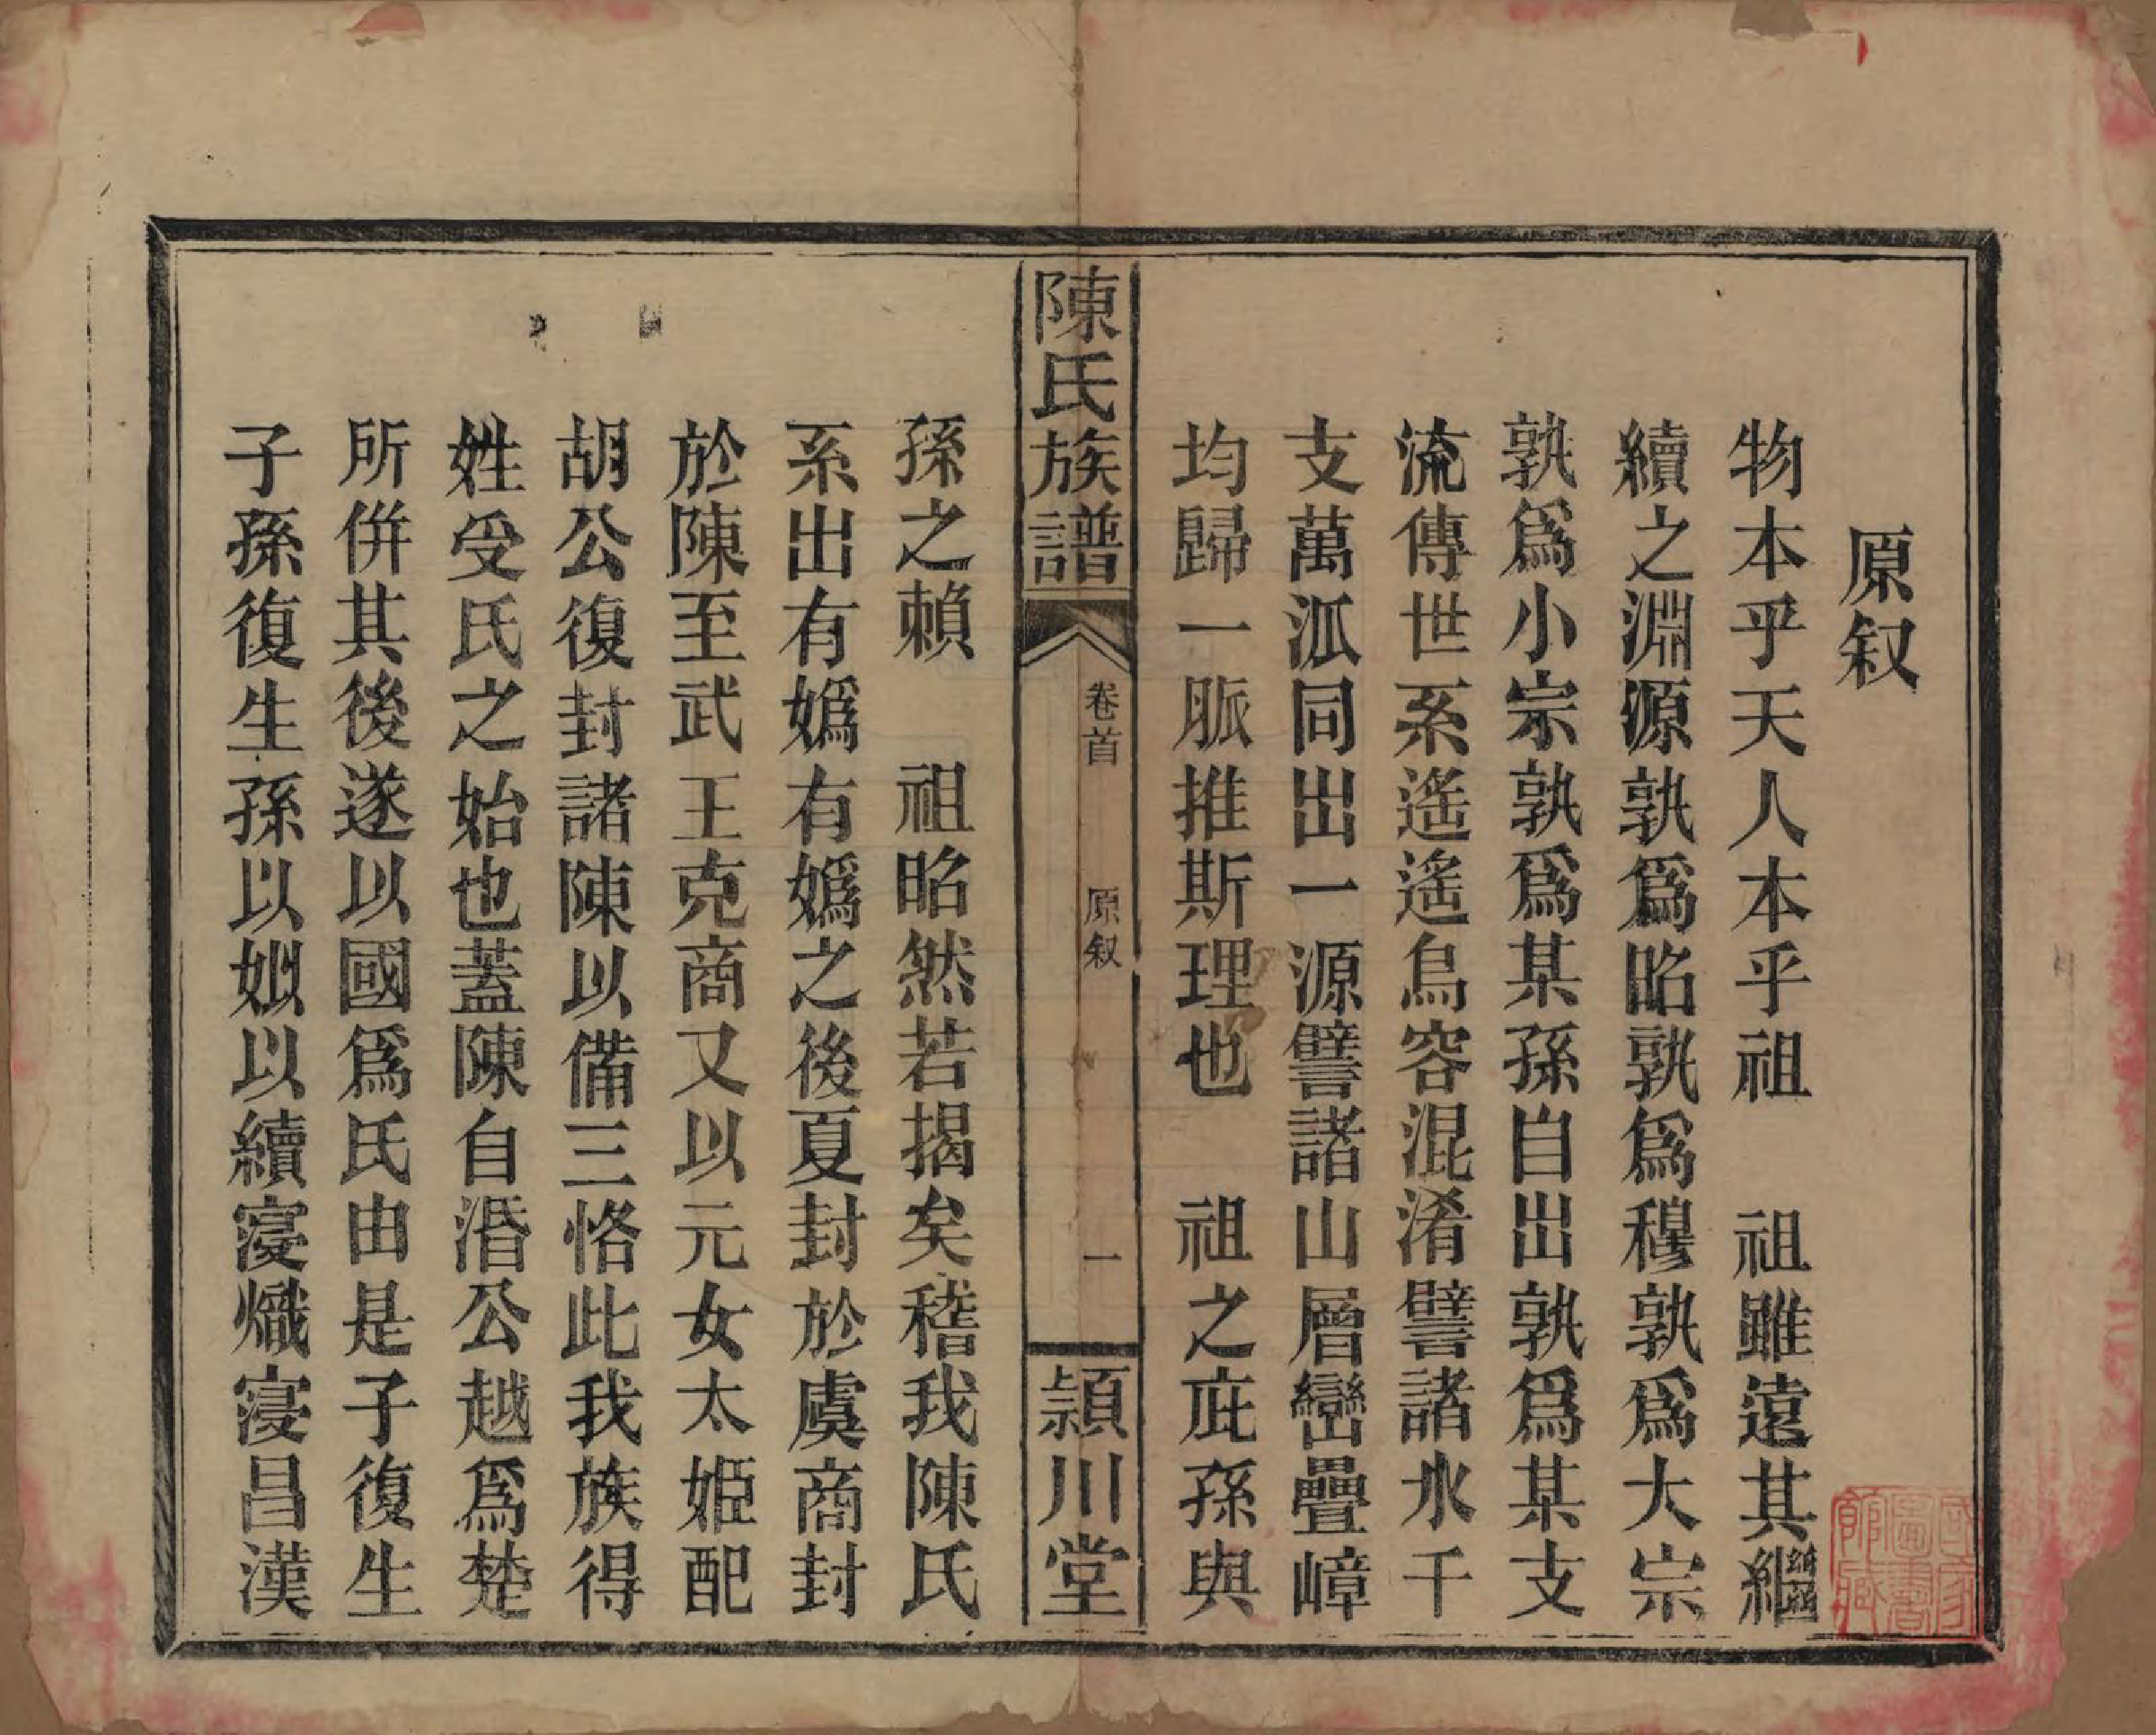 原叙
物本乎天人本乎祖　祖雖遠其繼
續之淵源孰爲昭孰爲穆孰爲大宗
孰爲小宗孰爲某孫自出孰爲某支
流傳世系遙遙鳥容混淆譬諸水千
支萬泒同出一源譬諸山層巒疊嶂
均歸一脈推斯理也　祖之庇孫與
陳氏族譜　卷首　原叙　一　潁川堂
孫之賴　祖昭然若揭矣稽我陳氏
系出有嬀有嬀之後夏封於虞商封
於陳至武王克商又以元女太姬配
胡公復封諸陳以備三恪此我族得
姓受氏之始也蓋陳自湣公越爲楚
所併其後遂以國爲氏由是子復生
子孫復生孫以姒以續寖熾寖昌漢
國家圖書館藏